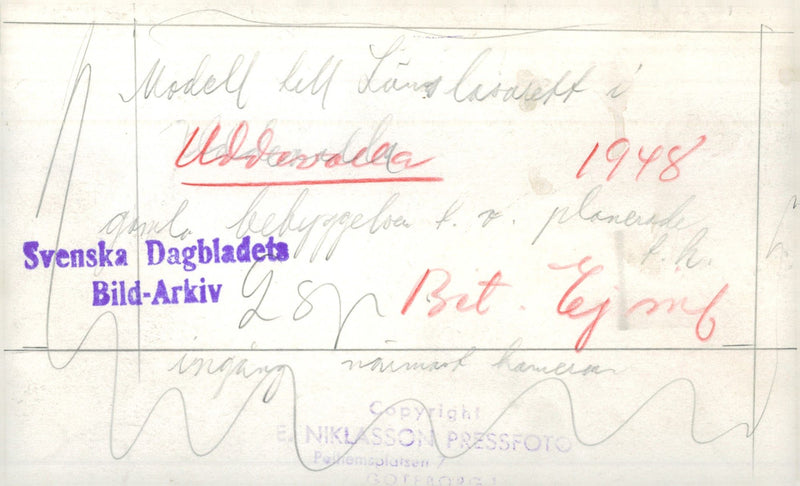 Modell till Länslasarett i
Uddevalla 1948
gamla bebyggelsen t. v. planerade
t. h.
Svenska Dagbladets
Bild-Arkiv
2 sp Bet. Ej inf
ingång närmast kameran
Copyright
E. NIKLASSON PRESSFOTO
Polhemsplatsen
GÖTEBORG 1